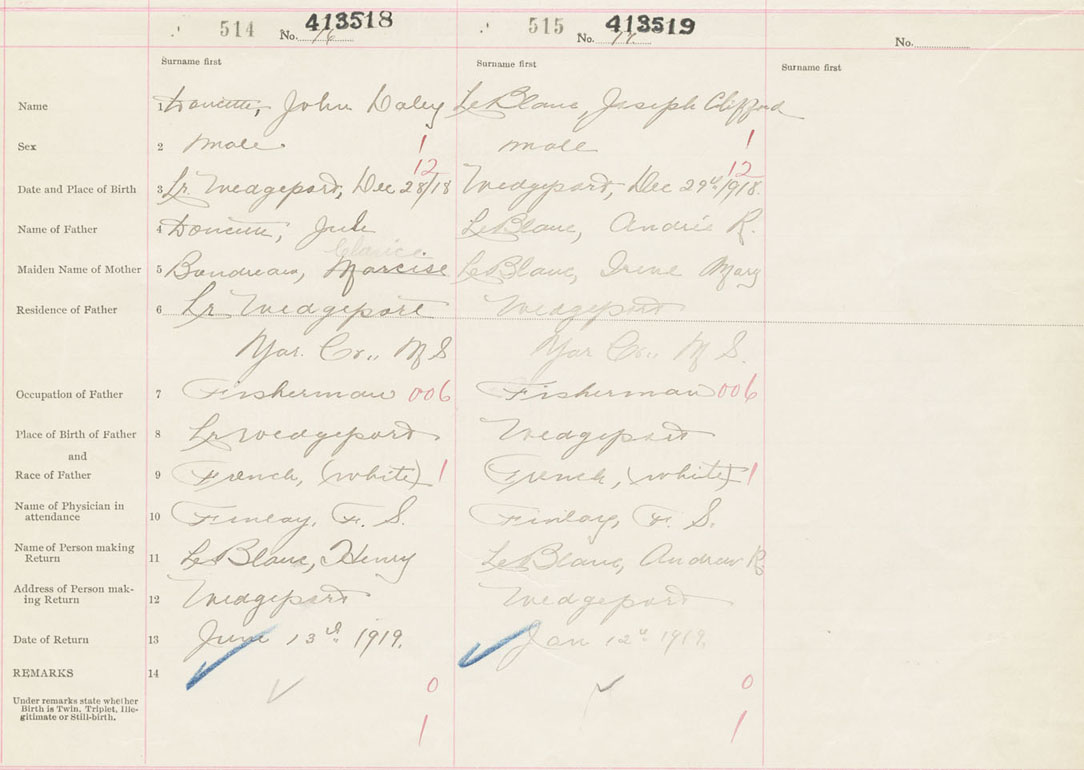 514 No. 16 413518 515 No. 17. 413519 No.
Surname first Surname first Surname first
Name 1 Doucette, John Daley LeBlanc, Joseph Clifford
Sex 2 male 1 male 1
12 12
Date and Place of Birth 3 Lr. Wedgeport, Dec 28/18 Wedgeport, Dec 29th/1918.
Name of Father 4 Doucette, Jude LeBlanc, Andrie R.
Clarice
Maiden Name of Mother 5 Boudreau, Marcise LeBlanc, Irene Mary
Residence of Father 6 Lr Wedgeport Wedgeport
Yar. Co., N S Yar Co., N S.
Occupation of Father 7 Fisherman 006 Fisherman 006
Place of Birth of Father 8 Lr Wedgeport Wedgeport
and
Race of Father 9 French, (white) 1 French, (white) 1
Name of Physician in
attendance 10 Finlay, F. S. Finlay, F. S.
Name of Person making
Return 11 LeBlanc, Henry LeBlanc, Andrew R
Address of Person mak-
ing Return 12 Wedgeport Wedgeport
Date of Return 13 June 13th 1919. Jan 12th 1919.
REMARKS 14
0 0
Under remarks state whether
Birth is Twin, Triplet, Ille-
gitimate or Still-birth.
1 1